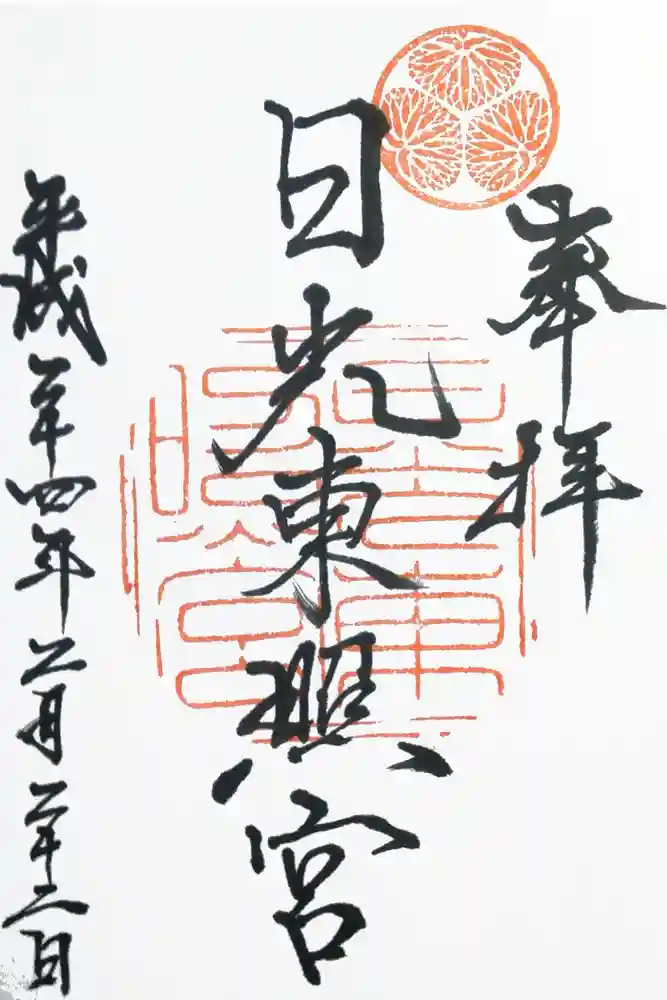 奉拝
日光東照宮
平成二十四年二月二十二日